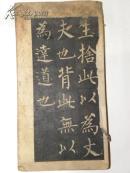 生捨此以為丈
夫也背此無以
為達道也